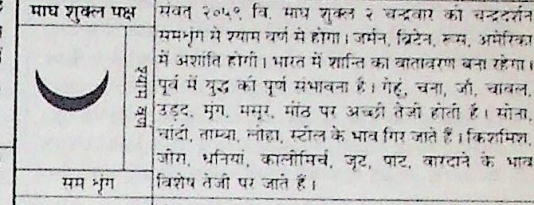 माघ शुक्ल पक्ष
श्याम वर्ण
सम श्रृंग
संवत् २०५९ वि. माघ शुक्ल २ चन्द्रवार को चन्द्रदर्शन
समश्रृंग से श्याम वर्ण में होगा। जर्मन, ब्रिटेन, रूस, अमेरिका
में अशांति होगी। भारत में शान्ति का वातावरण बना रहेगा।
पूर्व में युद्ध की पूर्ण संभावना है। गेहूं, चना, जौ, चावल,
उड़द, मूंग, मसूर, मोंठ पर अच्छी तेजी होती है। सोना,
चांदी, ताम्बा, लोहा, स्टील के भाव गिर जाते हैं। किशमिश,
जीरा, धनियां, कालीमिर्च, जूट, पाट, वारदाने के भाव
विशेष तेजी पर जाते हैं।